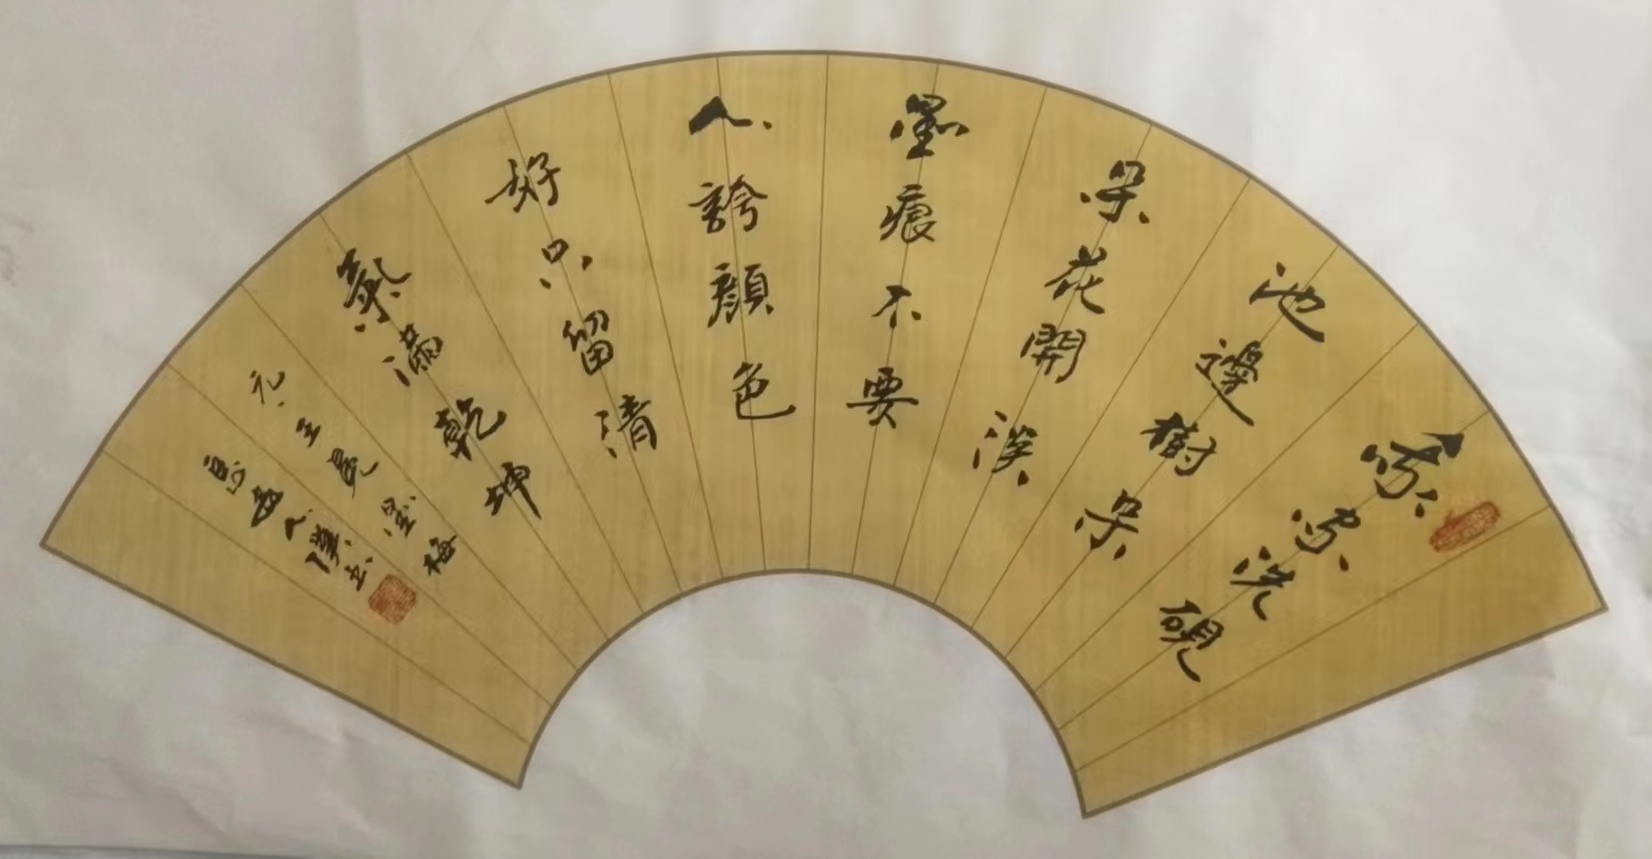 我家洗硯
池邊樹朵
朵花開淡
墨痕不要
人誇顏色
好只留清
氣滿乾坤
元王冕墨梅
書